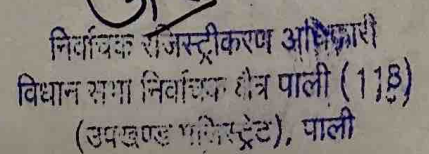 निर्वाचक रजिस्ट्रीकरण अधिकारी
विधान सभा निर्वाचक क्षेत्र पाली (118)
(उपखण्ड मजिस्ट्रेट), पाली